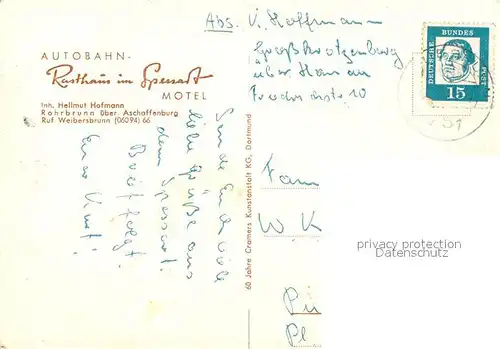 AUTOBAHN-
Rasthaus im Spessart
MOTEL
Inh. Hellmut Hofmann
Rohrbrunn über Aschaffenburg
Ruf Weibersbrunn (06094) 66
Abs. V. Hoffmann
Großkrotzenburg
über Hanau
10
DEUTSCHE BUNDESPOST
15
Sende Euch viele
liebe Grüße aus
dem Spessart.
Brief folgt.
Euer
60 Jahre Cramers Kunstanstalt KG, Dortmund
Fam
W K
Pl
privacy protection
Datenschutz